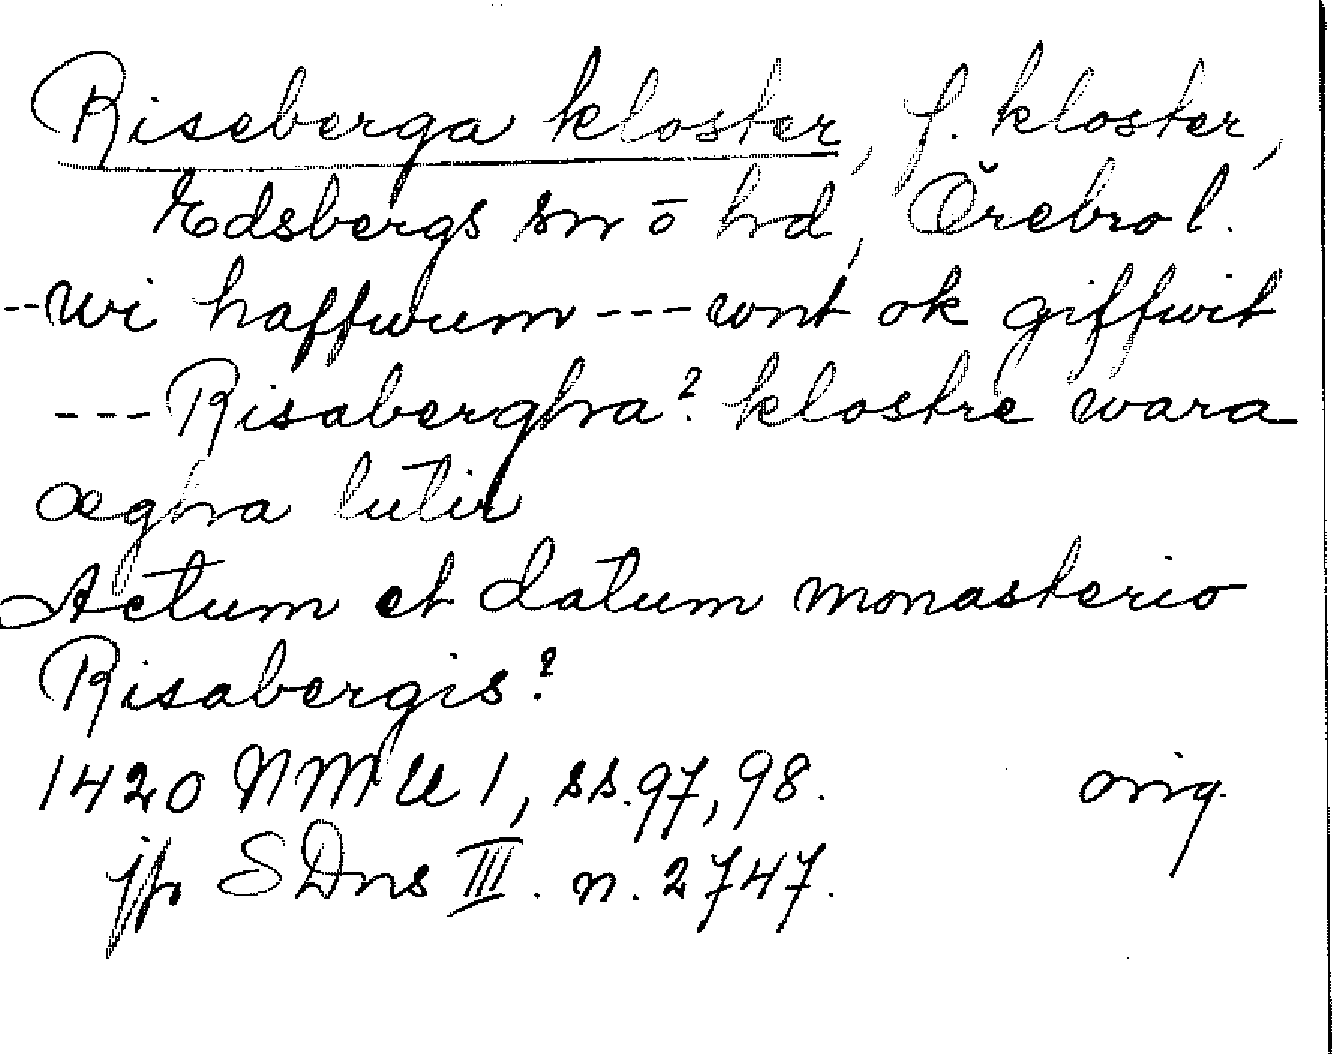 Riseberga kloster, f. kloster,
Edsbergs sn o hd, Örebro l.
--wi haffwum --- wnt ok giffwit
--- Risabergha? klostre wara
ægha lutir
Actum et datum monasterio
Risabergis?
1420 NMU 1, ss. 97, 98. orig.
jfr SDns III. n. 2747.